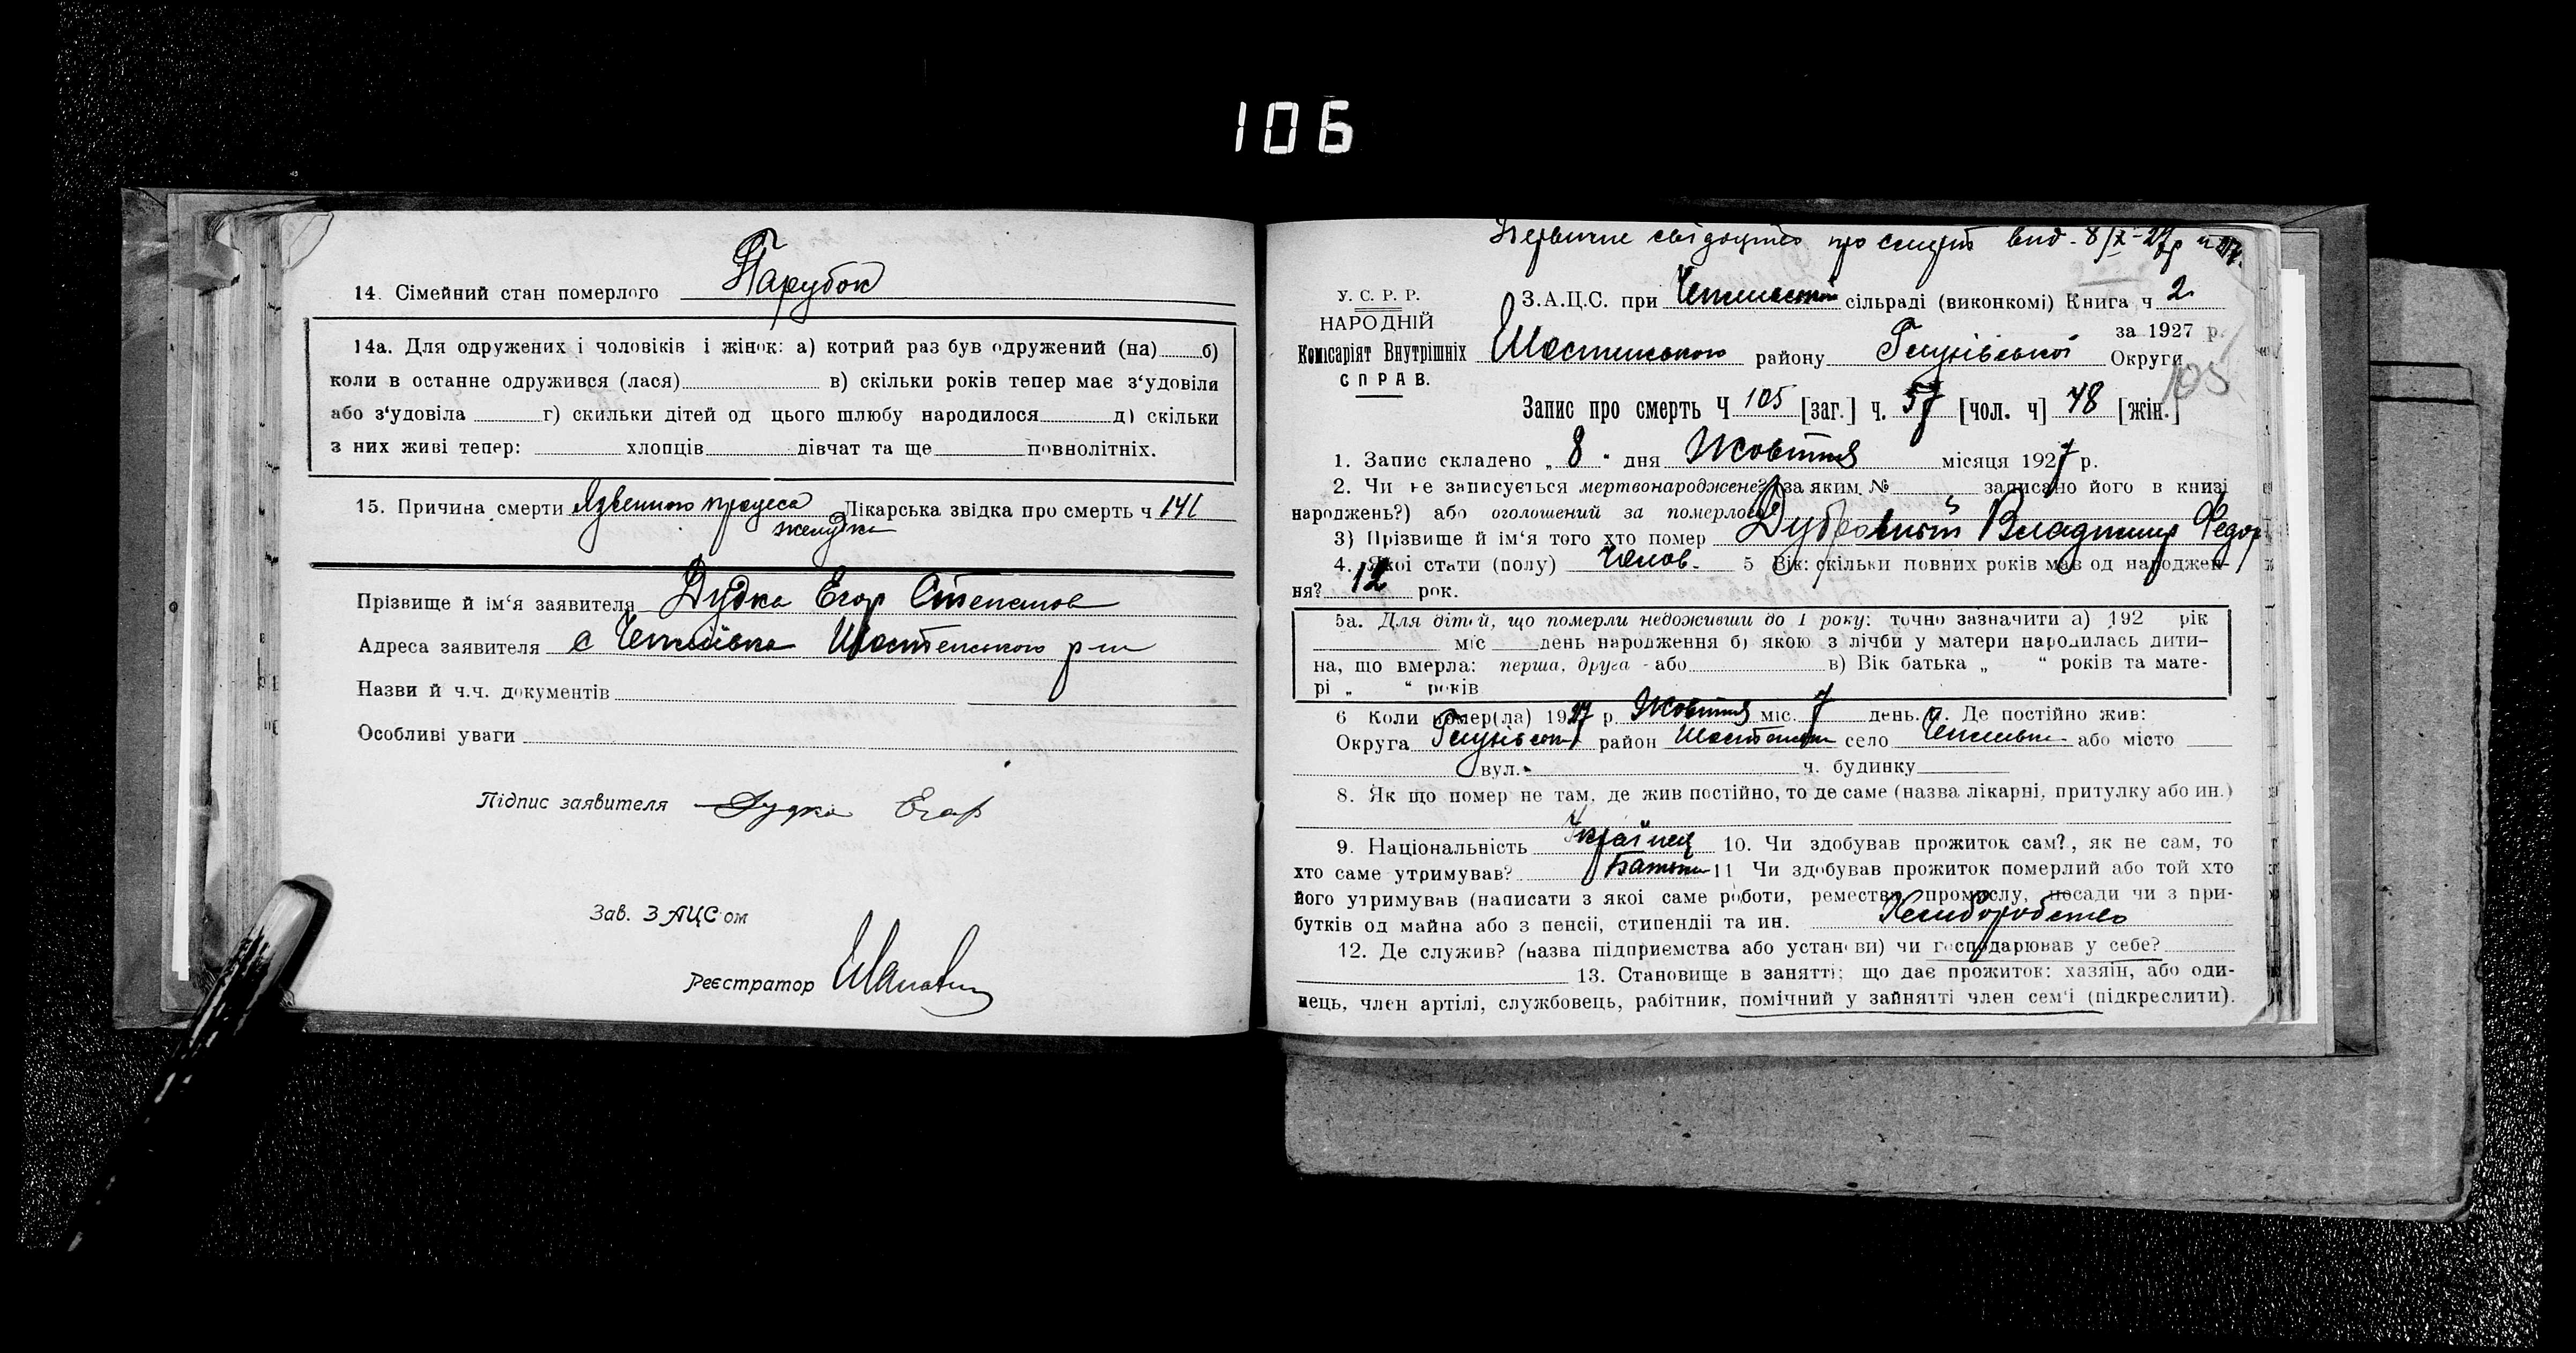 106
14. Сімейний стан померлого Парубок
14а. Для одружених і чоловіків і жінок: а) котрий раз був одружений (на) б)
коли в останне одружився (лася) в) скільки років тепер має з‘удовіла
або з‘удовіла г) скильки дітей од цього шлюбу народилося д) скільки
з них живі тепер: хлопців дівчат та ще повнолітніх.
15. Причина смерти Язвенного процеса Лікарська звідка про смерть ч 141
желудка
Прізвище й ім‘я заявителя Дудка Егор Степанов
Адреса заявителя с Шостенського р-ну
Назви й ч.ч. документів
Особливі уваги
Підпис заявителя Дудка Егор
Зав. ЗАЦС‘ом
Реєстратор
Первичне свідоцтво про смерть вид. 8/X-27р
У. С. Р. Р.
НАРОДНІЙ
Комісаріят Внутрішніх
СПРАВ.
З.А.Ц.С. при сільраді (виконкомі) Книга ч 2
за 1927 р.
Шостенського району Глухівської Округи
105
Запис про смерть Ч 105 [заг.] ч. 57 [чол. ч] 48 [жін.]
1. Запис складено „ 8 “ дня Жовтня місяця 1927 р.
2. Чи не записується мертвонароджене? (за яким № записано його в книзі
народжень?) або оголошений за померлого?
3) Прізвище й ім‘я того хто помер Владимир Федор
4. Якої стати (полу) Чолов. 5 Вік: скільки повних років мав од народжен-
ня? 12 рок.
5а. Для дітей, що померли недоживши до 1 року: точно зазначити а) 192 рік
міс день народження б) якою з лічби у матери народилась дити-
на, що вмерла: перша, друга - або в) Вік батька „ “ років та мате-
рі „ “ років
6 Коли помер(ла) 1927 р Жовтня міс. 7 день. 7. Де постійно жив:
Округа Глухівськ район Шостенськ село або місто
вул. ч. будинку
8. Як що помер не там, де жив постійно, то де саме (назва лікарні, притулку або ин.)
9. Національність Українец 10. Чи здобував прожиток сам?, як не сам, то
хто саме утримував? Батьки 11 Чи здобував прожиток померлий або той хто
його утримував (написати з якоі саме роботи, ремества, промислу, посади чи з при-
бутків од майна або з пенсіі, стипендіі та ин. Хлиборобство
12. Де служив? (назва підприемства або установи) чи господарював у себе?
13. Становище в занятті: що дає прожиток: хазяін, або оди-
нець, член артілі, службовець, рабітник, помічний у зайнятті член сем‘і (підкреслити).